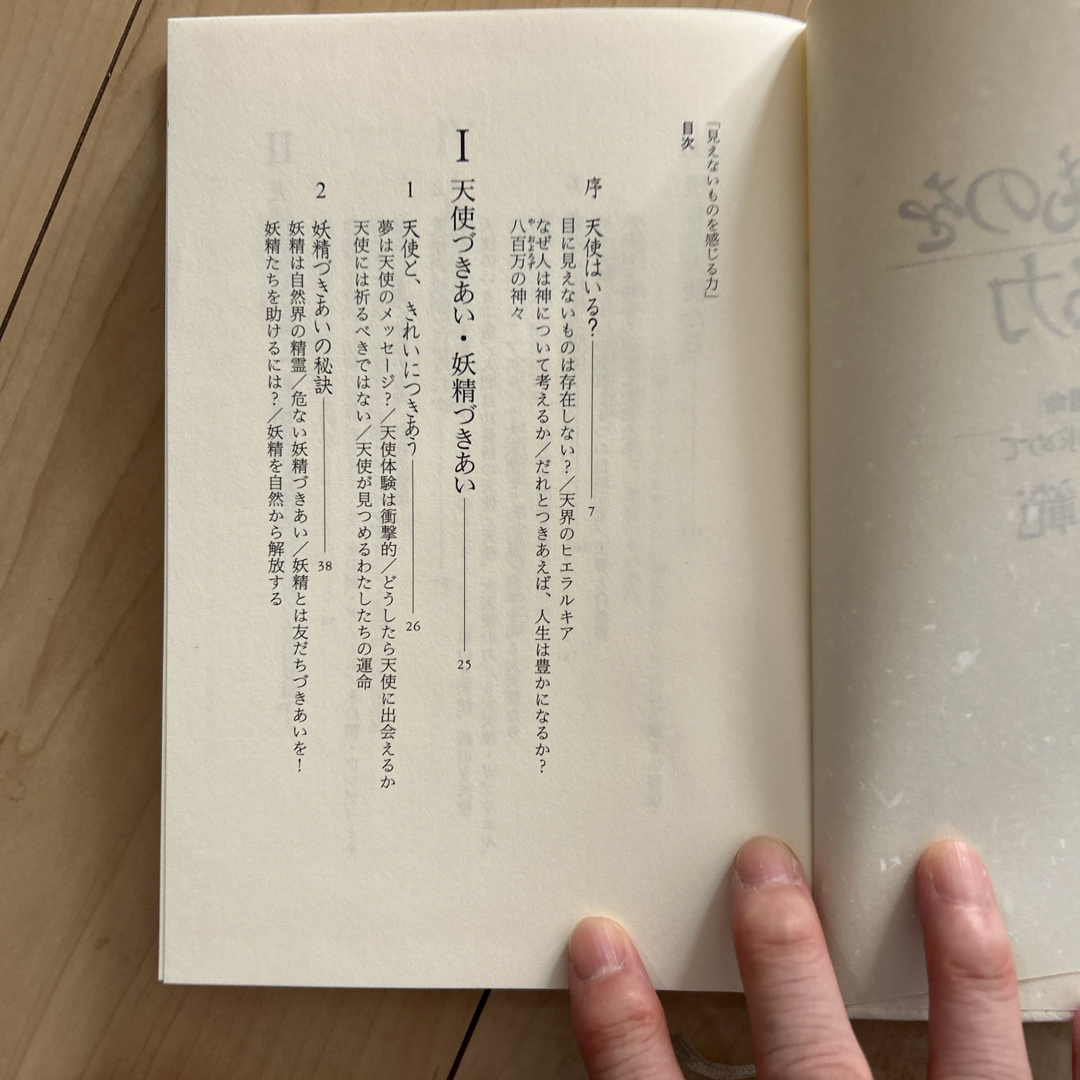 「見えないものを感じる力」
目次
序 天使はいる？ 7
目に見えないものは存在しない？／天界のヒエラルキア
なぜ人は神について考えるか／だれとつきあえば、人生は豊かになるか？
八百万の神々
やおよろず
I 天使づきあい・妖精づきあい 25
1 天使と、きれいにつきあう 26
夢は天使のメッセージ？／天使体験は衝撃的／どうしたら天使に出会えるか
天使には祈るべきではない／天使が見つめるわたしたちの運命
2 妖精づきあいの秘訣 38
妖精は自然界の精霊／危ない妖精づきあい／妖精とは友だちづきあいを！
妖精たちを助けるには？／妖精を自然から解放する